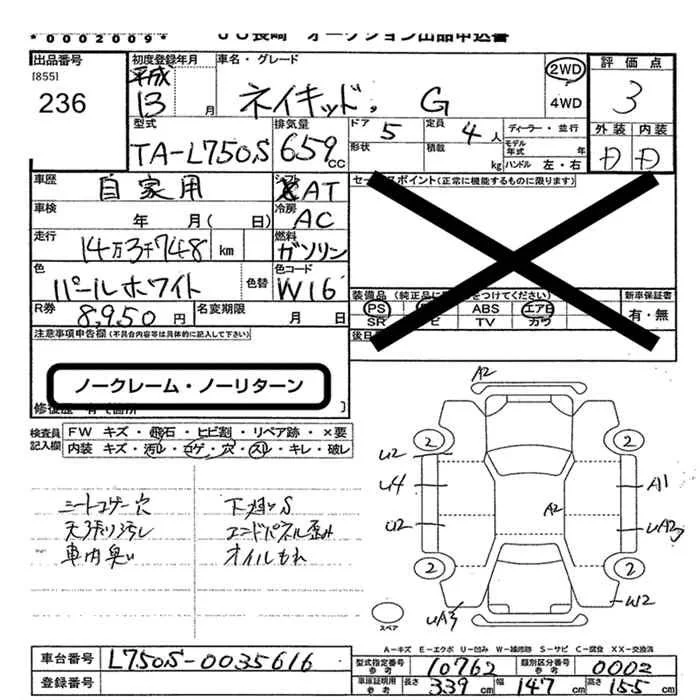 *0002009*
JU長崎 オークション出品申込書
出品番号
[855]
236
初度登録年月
平成
13 月
車名・グレード
ネイキッド。 G
2WD
4WD
評価点
3
外装 内装
D D
型式
TA-L750S
排気量
659 cc
ドア 5
定員 4 人
ディーラー・並行
形状
積載 kg
モデル年式 年
ハンドル 左・右
車歴
自家用
シフト
AT
セールスポイント(正常に機能するものに限ります)
車検
年 月( 日)
冷房
AC
走行
14万3千748 km
燃料
ガソリン
色
パールホワイト
色替
色コード
W16
装備品 (純正品に をつけてください)
新車保証書
有・無
PS ABS エアB
SR TV カワ
R券
8,950 円
名変期限
月 日
後日
注意事項申告欄(不具合内容等は具体的に記入して下さい)
ノークレーム・ノーリターン
修復歴 有( 箇所 )
検査員記入欄
FW キズ・飛石・ヒビ割・リペア跡・×要
内装 キズ・汚レ・コゲ・穴・スレ・キレ・破レ
シートコゲ穴
天張り汚し
車内臭い
下廻りS
エンドパネル歪み
オイルもれ
A2
2 2
U2
U4 A1
A2
U2 UA2
2 2
W2
UA3
スペア
A-キズ E-エクボ U-凹み W-補修跡 S-サビ C-腐食 XX-交換済
車台番号 L750S-0035616
登録番号
型式指定番号 参考 10762
類別区分番号 参考 0002
車庫証明用 参考 長さ 339 cm 幅 147 cm 高さ 155 cm